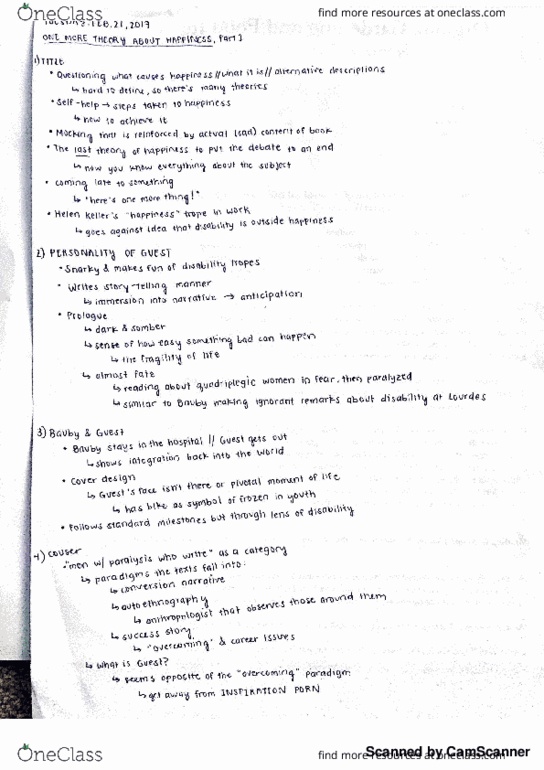 OneClass
find more resources at oneclass.com
FEB. 21, 2017
ONE MORE THEORY ABOUT HAPPINESS, Part 1
1) TITLE
• Questioning what causes happiness // what it is // alternative descriptions
↳ hard to define, so there's many theories
• Self-help → steps taken to happiness
↳ how to achieve it
• Mocking that is reinforced by actual (sad) content of book
• The last theory of happiness to put the debate to an end
↳ now you know everything about the subject
• coming late to something
↳ "here's one more thing!"
• Helen Keller's "happiness" trope in work
↳ goes against idea that disability is outside happiness
2) PERSONALITY OF GUEST
• Snarky & makes fun of disability tropes
• Writes story-telling manner
↳ immersion into narrative → anticipation
• Prologue
↳ dark & somber
↳ sense of how easy something bad can happen
↳ the fragility of life
↳ almost fate
↳ reading about quadriplegic women in fear, then paralyzed
↳ similar to Bauby making ignorant remarks about disability at Lourdes
3) BAUBY & GUEST
• Bauby stays in the hospital // Guest gets out
↳ shows integration back into the world
• Cover design
↳ Guest's face isn't there or pivotal moment of life
↳ has bike as symbol of frozen in youth
• Follows standard milestones but through lens of disability
4) COUSER
• "men w/ paralysis who write" as a category
↳ paradigms the texts fall into:
↳ conversion narrative
↳ autoethnography
↳ anthropologist that observes those around them
↳ success story
↳ "overcoming" & career issues
↳ What is Guest?
↳ seems opposite of the "overcoming" paradigm
↳ get away from INSPIRATION PORN
OneClass
find more resources at oneclass.com
Scanned by CamScanner